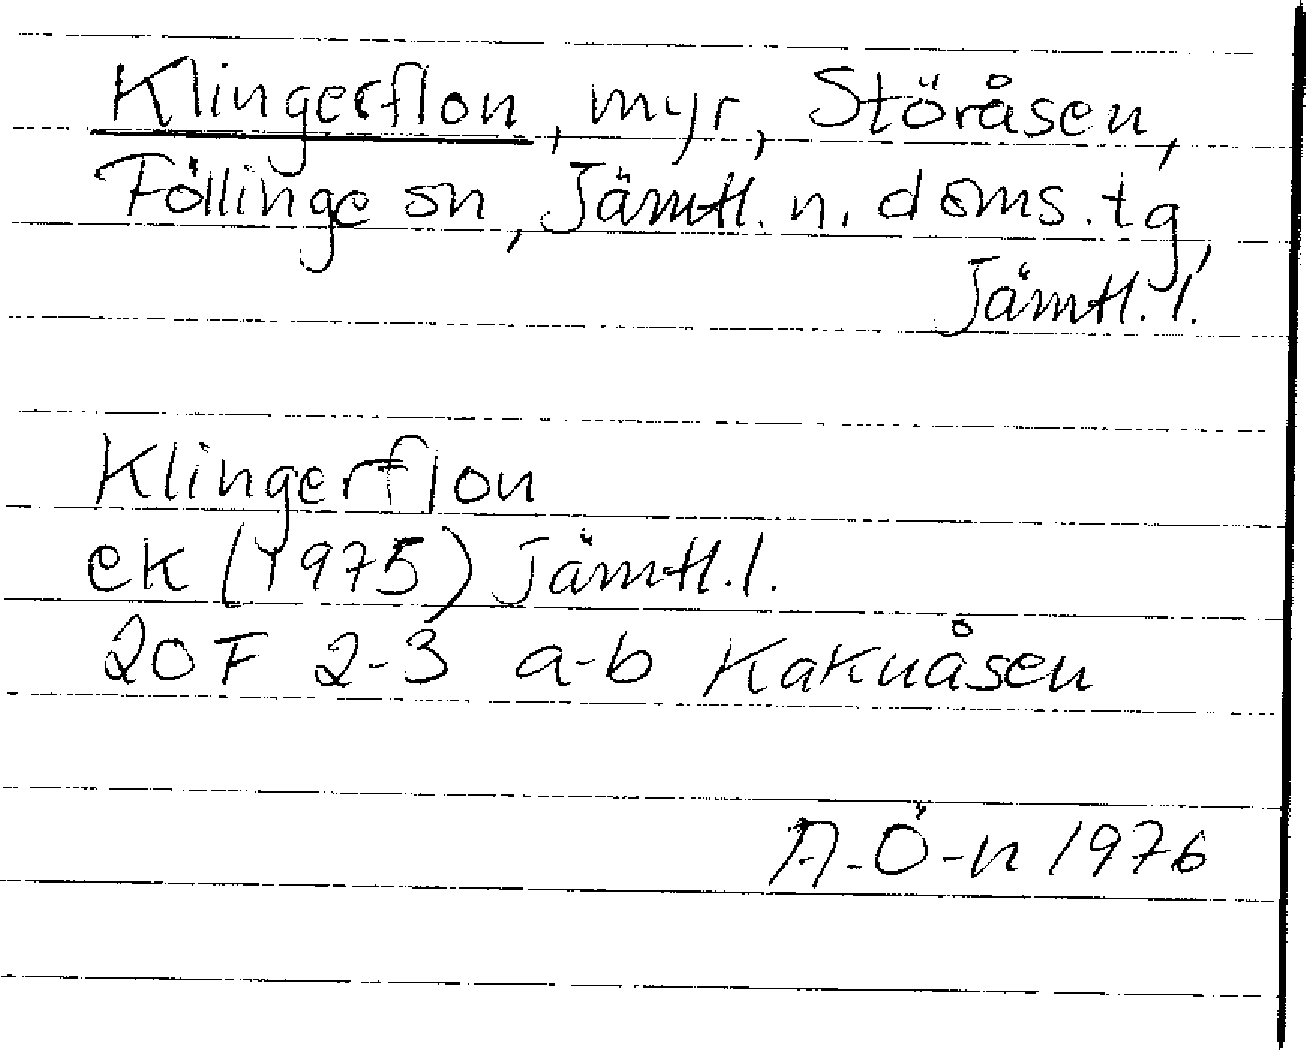 Klingerflon, myr, Störåsen,
Föllinge sn, Jämtl. n. doms. tg,
Jämtl. l.
Klingerflon
ek (1975) Jämtl. l.
20F 2-3 a-b Kakuåsen
A-Ö-n 1976